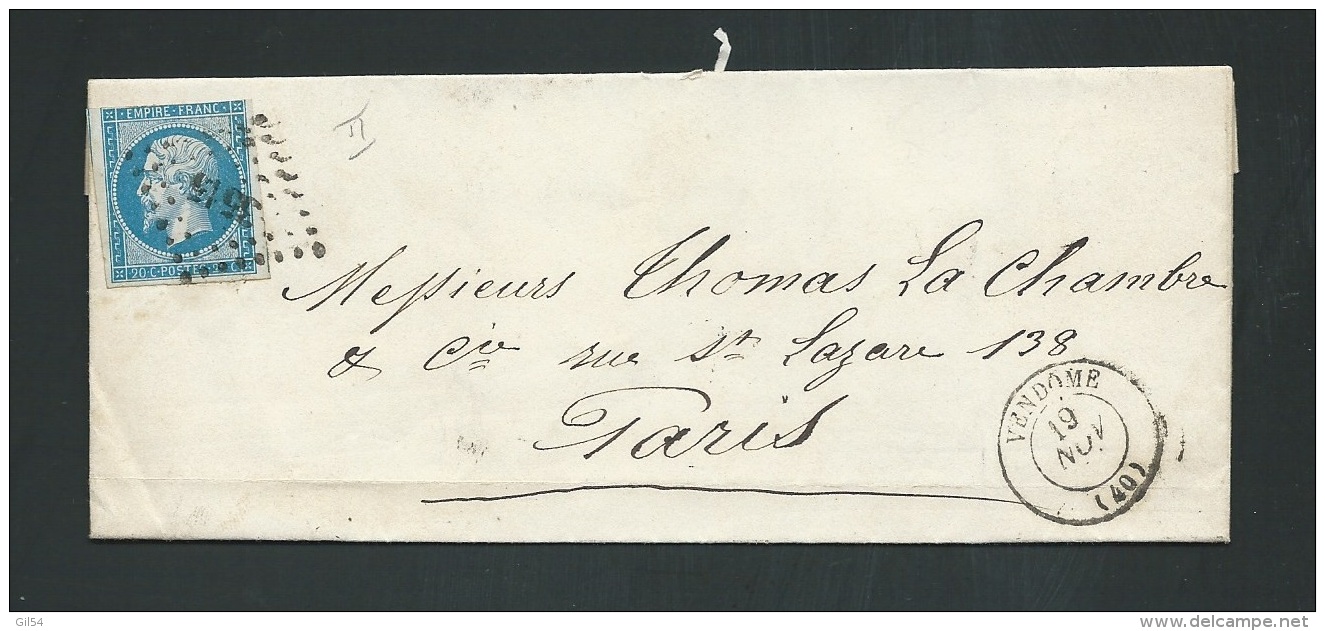 EMPIRE · FRANC ·
20 · C · POSTES · 20 · C
Messieurs Thomas La Chambre
& Cie rue St Lazare 138
Paris
VENDÔME
19
NOV
(40)
Gil54
www.delcampe.net